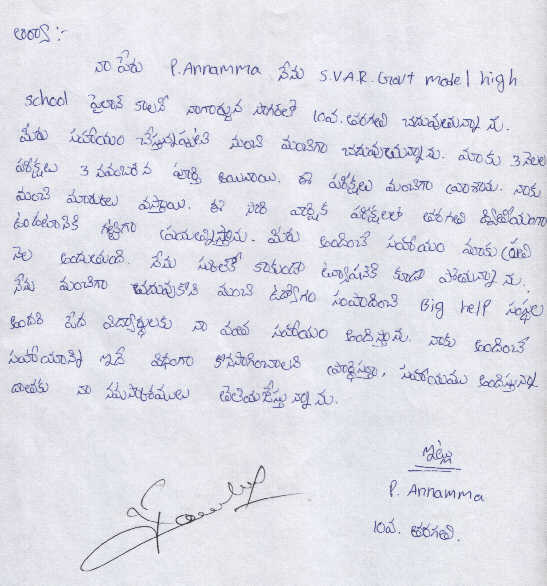 ఆర్యా :-
నా పేరు P. Annamma నేను S.V.A.R. Govt model high
school పైలాన్ కాలనీ నాగార్జున సాగర్‌లో 10వ. తరగతి చదువుతున్నాను.
మీరు సహాయం చేస్తున్నప్పటి నుంచి మంచిగా చదువుతున్నాను. మాకు 3 నెలల
పరీక్షలు 3 నవంబర్ న పూర్తి అయినాయి. ఈ పరీక్షలు మంచిగా వ్రాశాను. నాకు
మంచి మార్కులు వస్తాయి. ఈ సారి వార్షిక పరీక్షలలో తరగతి ద్వితీయంగా
ఉండటానికి గట్టిగా ప్రయత్నిస్తాను. మీరు అందించే సహాయం మాకు ప్రతి
నెల అందుతుంది. నేను స్కూలుకే కాకుండా ట్యూషన్‌కి కూడా పోతున్నాను.
నేను మంచిగా చదువుకొని మంచి ఉద్యోగం సంపాదించి Big help సంస్థల
అందరి పేద విద్యార్థులకు నా వంతు సహాయం అందిస్తాను. నాకు అందించే
సహాయాన్ని ఇదే విధంగా కొనసాగించాలని ప్రార్థిస్తూ, సహాయము అందిస్తున్న
దాతకు నా నమస్కారములు తెలియజేస్తున్నాను.
ఇట్లు
P. Annamma
10వ. తరగతి.